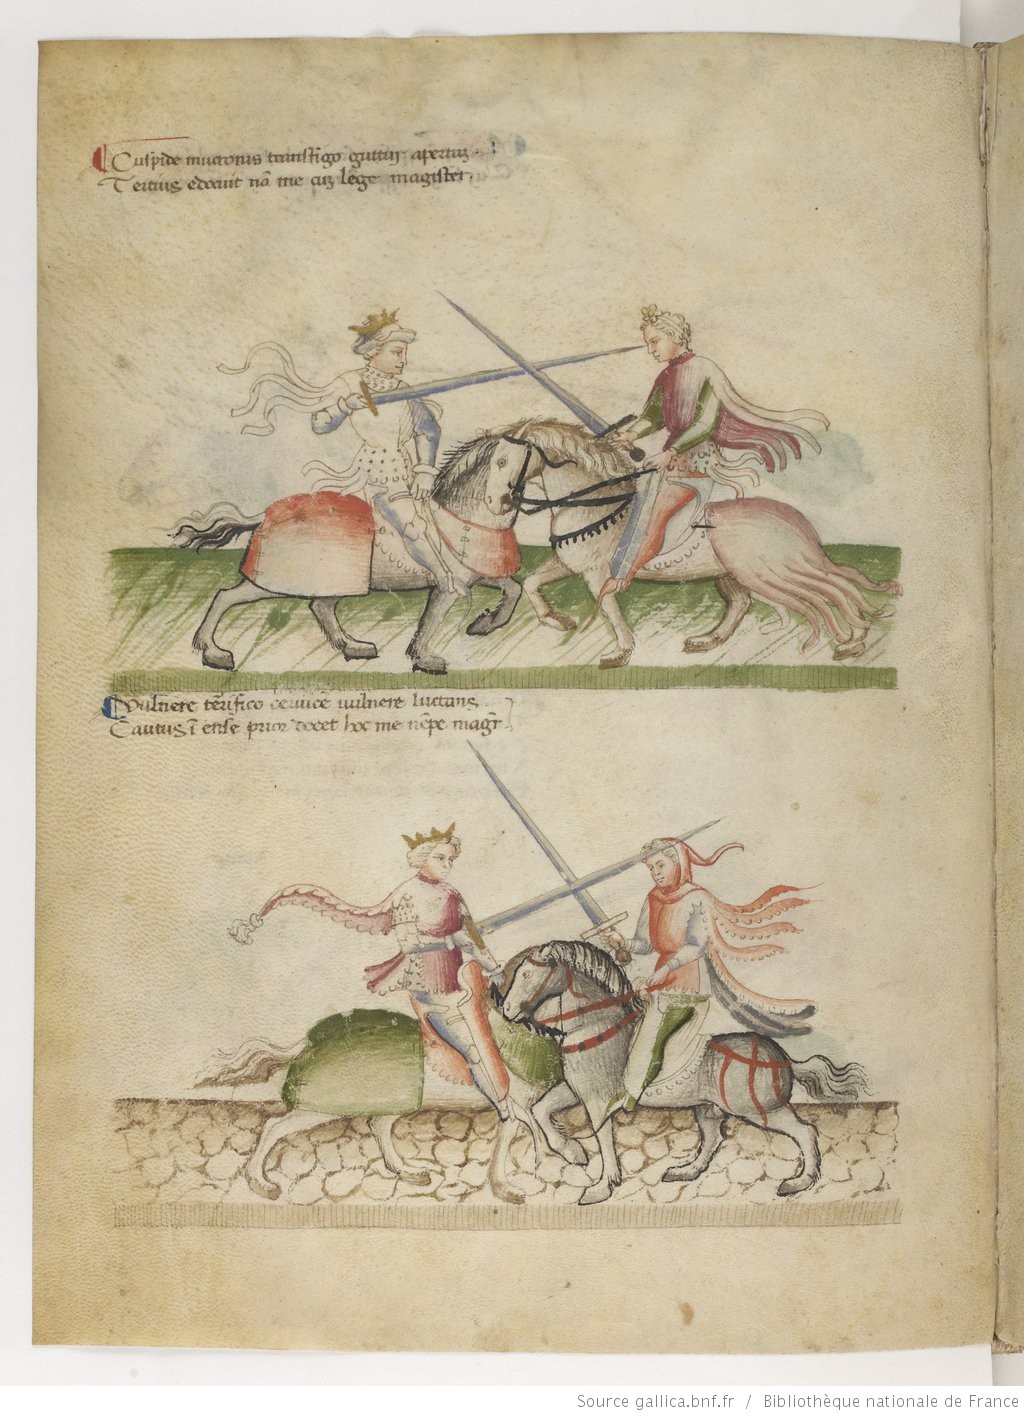 Cuspide mucronis transfigo guttur apertuʒ.
Tertius edocuit nō me cuʒ lege magister.
Vulnere terrifico cervice vulnere luctans
Cautus ī ense prior docet hoc me nēpe magr̄.
Source gallica.bnf.fr / Bibliothèque nationale de France